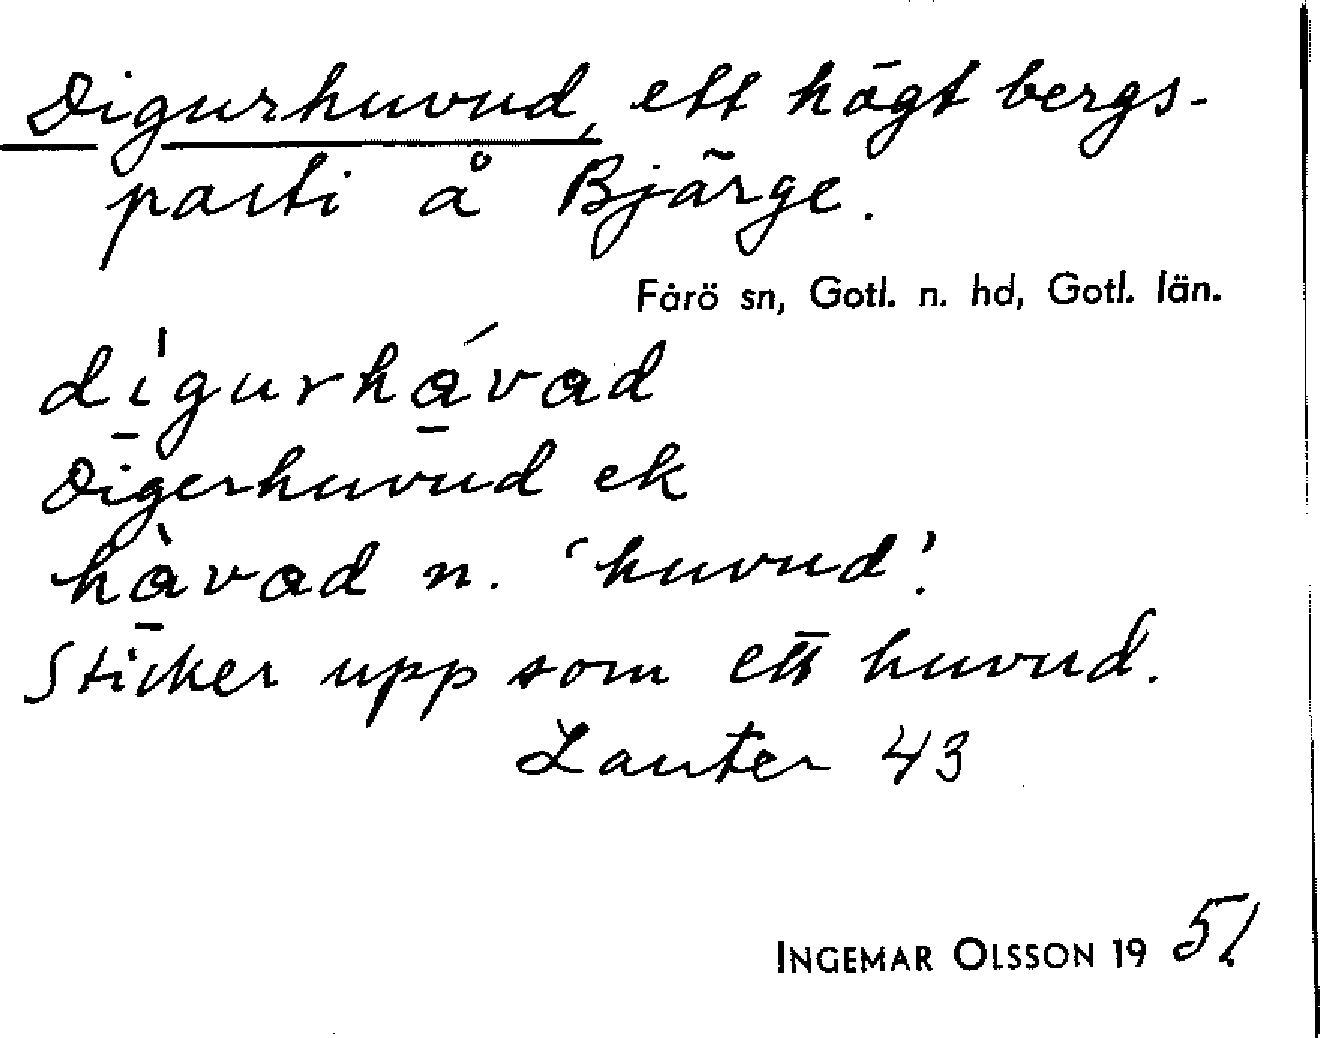 Digurhuvud, ett högt bergs-
parti å Bjärge.
Fårö sn, Gotl. n. hd, Gotl. län.
dígurhávad
Digerhuvud ek
hàvad n. 'huvud'.
Sticker upp som ett huvud.
Lauter 43
INGEMAR OLSSON 19 51